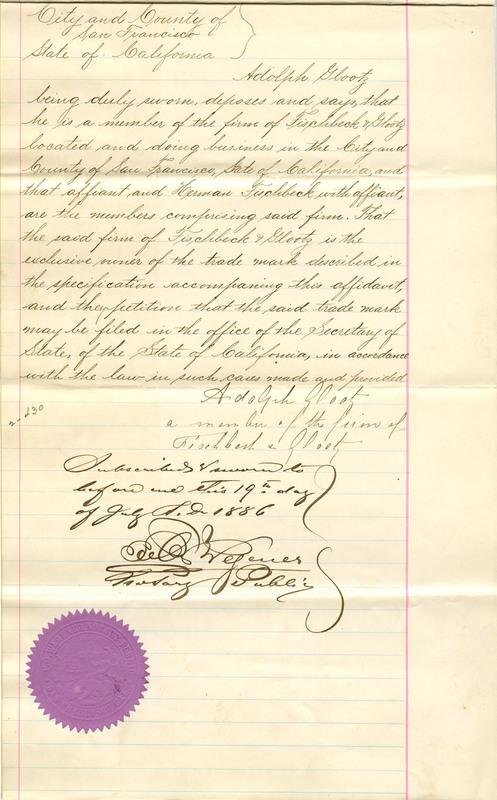 City and County of
San Francisco
State of California
Adolph Glootz
being duly sworn, deposes and says, that
he is a member of the firm of Fischbeck & Glootz
located and doing business in the City and
County of San Francisco, State of California, and
that affiant, and Herman Fischbeck with affiant,
are the members comprising said firm. That
the said firm of Fischbeck & Glootz is the
exclusive owner of the trade mark described in
the specification accompaning this affidavit,
and they petition that the said trade mark
may be filed in the office of the Secretary of
State, of the State of California, in accordance
with the law in such cases made and provided
Adolph Glootz
a member of the firm of
Fischbeck & Glootz
Subscribed & sworn to
before me this 19th day
of July A.D. 1886
Wegener
Notary Public